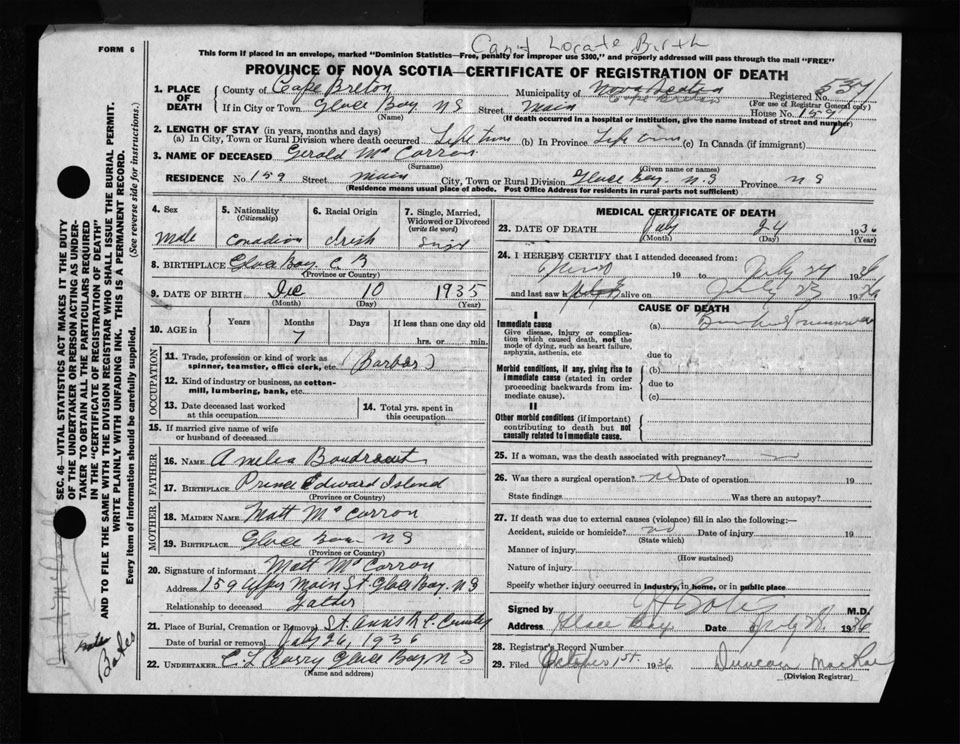 Can't Locate Birth
FORM 6
This form if placed in an envelope, marked "Dominion Statistics—Free, penalty for improper use $300," and properly addressed will pass through the mail "FREE"
PROVINCE OF NOVA SCOTIA—CERTIFICATE OF REGISTRATION OF DEATH
1. PLACE OF DEATH
County of Cape Breton Municipality of Nova Scotia Registered No.
(For use of Registrar General only)
If in City or Town Glace Bay NS Street Main House No. 159
(Name) (If death occurred in a hospital or institution, give the name instead of street and number)
2. LENGTH OF STAY (in years, months and days)
(a) In City, Town or Rural Division where death occurred Life time (b) In Province Life time (c) In Canada (if immigrant)
3. NAME OF DECEASED Gerald Mc Carron
(Surname) (Given name or names)
RESIDENCE No. 159 Street Main City, Town or Rural Division Glace Bay. N.S Province N S
(Residence means usual place of abode. Post Office Address for residents in rural parts not sufficient)
4. Sex
Male
5. Nationality (Citizenship)
Canadian
6. Racial Origin
Irish
7. Single, Married, Widowed or Divorced (write the word)
Singl
8. BIRTHPLACE Glace Bay C B
(Province or Country)
9. DATE OF BIRTH Dec 10 1935
(Month) (Day) (Year)
10. AGE in Years Months Days If less than one day old
7 hrs. or min.
OCCUPATION
11. Trade, profession or kind of work as spinner, teamster, office clerk, etc. (Barber)
12. Kind of industry or business, as cotton-mill, lumbering, bank, etc.
13. Date deceased last worked at this occupation
14. Total yrs. spent in this occupation
15. If married give name of wife or husband of deceased
FATHER
16. NAME Amelia Boudreaut
17. BIRTHPLACE Prince Edward Island
(Province or Country)
MOTHER
18. MAIDEN NAME Matt Mc Carron
19. BIRTHPLACE Glace Bay NS
(Province or Country)
20. Signature of informant Matt Mc Carron
Address 159 Upper Main St. Glace Bay. NS
Relationship to deceased Father
21. Place of Burial, Cremation or Removal St. Anns
Date of burial or removal July 26, 1936
22. UNDERTAKER C L Curry Glace Bay N S
(Name and address)
MEDICAL CERTIFICATE OF DEATH
23. DATE OF DEATH July 24 1936
(Month) (Day) (Year)
24. I HEREBY CERTIFY that I attended deceased from:
19 to July 24 1936
and last saw alive on July 23 1936
CAUSE OF DEATH
I
Immediate cause
Give disease, injury or complication which caused death, not the mode of dying, such as heart failure, asphyxia, asthenia, etc
(a)
due to
Morbid conditions, if any, giving rise to immediate cause (stated in order proceeding backwards from immediate cause).
(b)
due to
(c)
II
Other morbid conditions (if important) contributing to death but not causally related to immediate cause.
25. If a woman, was the death associated with pregnancy?
26. Was there a surgical operation? no Date of operation 19
State findings Was there an autopsy?
27. If death was due to external causes (violence) fill in also the following:—
Accident, suicide or homicide? no Date of injury 19
(State which)
Manner of injury
(How sustained)
Nature of injury
Specify whether injury occurred in industry, in home, or in public place
Signed by M.D.
Address Glace Bay Date July 28 1936
28. Registrar's Record Number
29. Filed October 1st. 1936 Duncan MacRae
(Division Registrar)
SEC. 46—VITAL STATISTICS ACT MAKES IT THE DUTY OF THE UNDERTAKER OR PERSON ACTING AS UNDERTAKER TO OBTAIN ALL THE PARTICULARS REQUIRED IN THE "CERTIFICATE OF REGISTRATION OF DEATH" AND TO FILE THE SAME WITH THE DIVISION REGISTRAR WHO SHALL ISSUE THE BURIAL PERMIT.
WRITE PLAINLY WITH UNFADING INK. THIS IS A PERMANENT RECORD.
Every item of information should be carefully supplied. (See reverse side for instructions.)
Bates